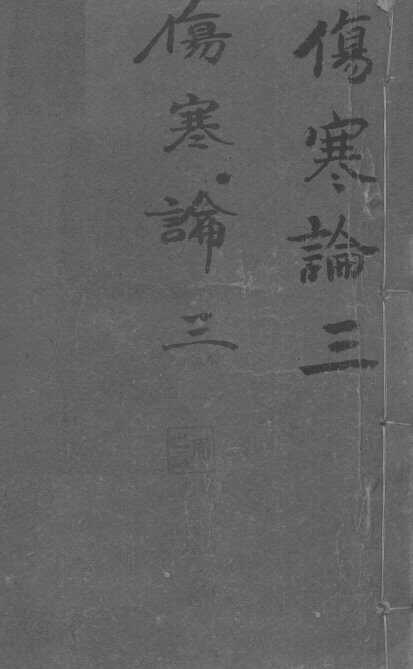 傷寒論三
傷寒論三